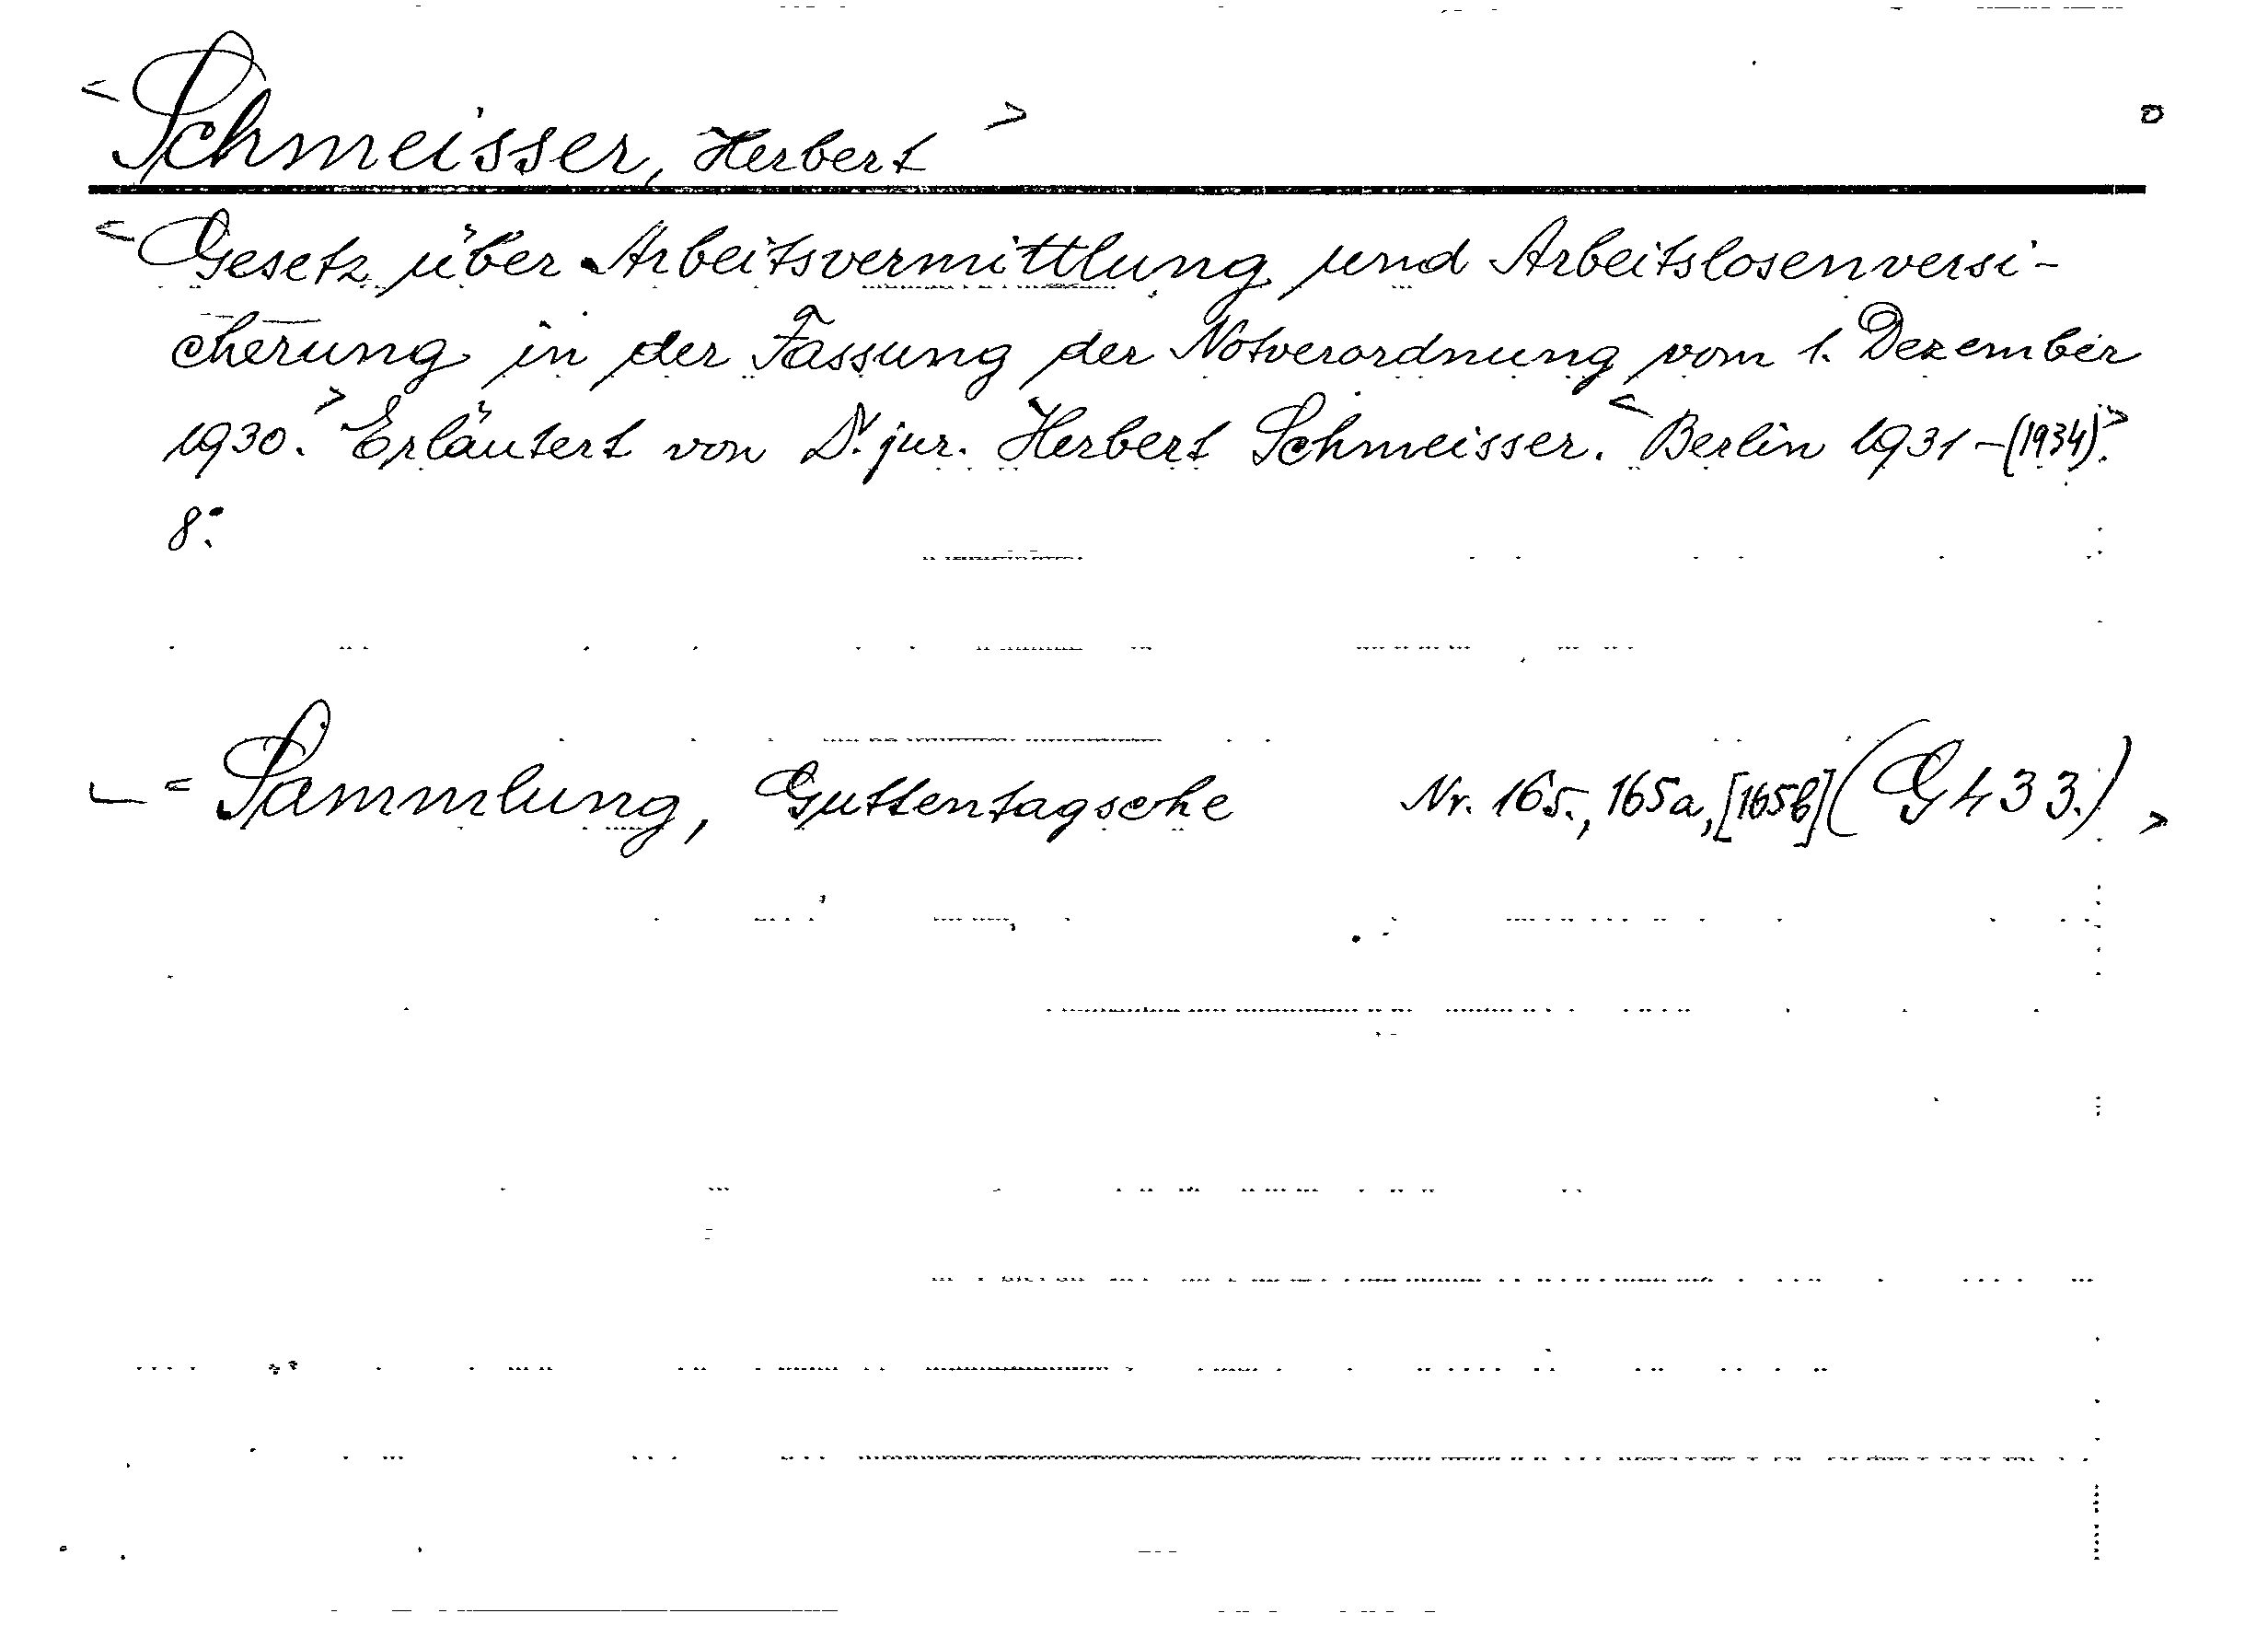 <Schmeisser, Herbert> o
<Gesetz über Arbeitsvermittlung und Arbeitslosenversi-
cherung in der Fassung der Notverordnung vom 1. Dezember
1930.> Erläutert von Dr. jur. Herbert Schmeisser. <Berlin 1931-(1934).>
8°.
= Sammlung, Guttentagsche Nr. 165., 165a, [165b] (G 433.) >